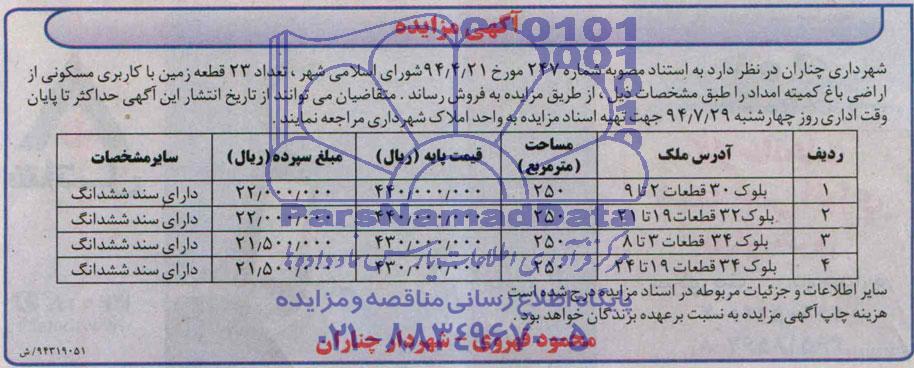 آگهی مزایده
شهرداری چناران در نظر دارد به استناد مصوبه شماره ۲۴۷ مورخ ۹۴٫۴٫۲۱ شورای اسلامی شهر ، تعداد ۲۳ قطعه زمین با کاربری مسکونی از
اراضی باغ کمیته امداد را طبق مشخصات ذیل ، از طریق مزایده به فروش رساند . متقاضیان می توانند از تاریخ انتشار این آگهی حداکثر تا پایان
وقت اداری روز چهارشنبه ۹۴٫۷٫۲۹ جهت تهیه اسناد مزایده به واحد املاک شهرداری مراجعه نمایند .
ردیف آدرس ملک مساحت (مترمربع) قیمت پایه (ریال) مبلغ سپرده (ریال) سایرمشخصات
۱ بلوک ۳۰ قطعات ۲ تا ۹ ۲۵۰ ۴۴۰٫۰۰۰٫۰۰۰ ۲۲٫۰۰۰٫۰۰۰ دارای سند ششدانگ
۲ بلوک ۳۲ قطعات ۱۹ تا ۲۱ ۲۵۰ ۴۴۰٫۰۰۰٫۰۰۰ ۲۲٫۰۰۰٫۰۰۰ دارای سند ششدانگ
۳ بلوک ۳۴ قطعات ۳ تا ۸ ۲۵۰ ۴۳۰٫۰۰۰٫۰۰۰ ۲۱٫۵۰۰٫۰۰۰ دارای سند ششدانگ
۴ بلوک ۳۴ قطعات ۱۹ تا ۲۴ ۲۵۰ ۴۳۰٫۰۰۰٫۰۰۰ ۲۱٫۵۰۰٫۰۰۰ دارای سند ششدانگ
سایر اطلاعات و جزئیات مربوطه در اسناد مزایده درج شده است
هزینه چاپ آگهی مزایده به نسبت بر عهده برندگان خواهد بود .
محمود قهروی - شهردار چناران
۹۴۳۱۹۰۵۱/ش
ParsNamadData
پایگاه اطلاع رسانی مناقصه و مزایده
۰۲۱-۸۸۳۴۹۶۷۰-۵